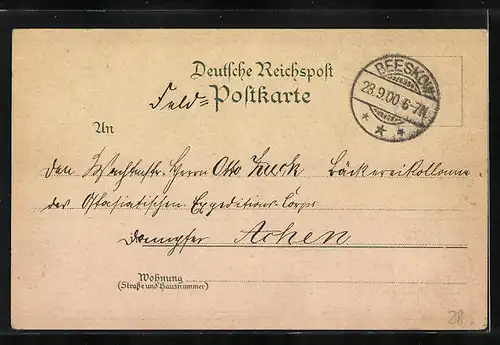 Deutsche Reichspost
Feld= Postkarte
BEESKOW
28.9.00. 6-7N.
An
den Wachtmstr. Herrn Otto Bäckereikolonne
des Ostasiatischen Expeditions-Corps
Dampfer Achen
Wohnung
(Straße und Hausnummer)
28